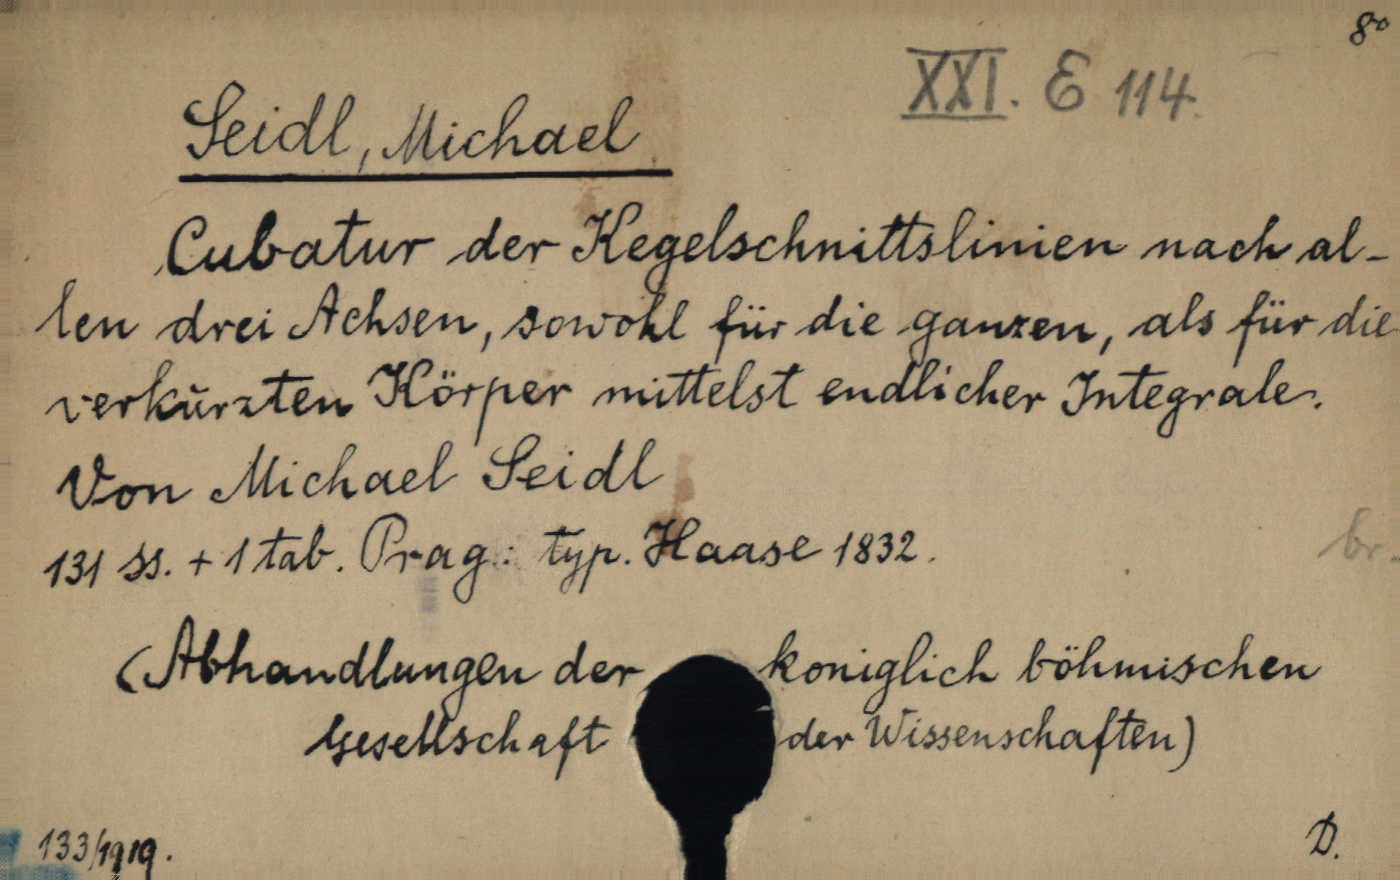 8°
XXI. E 114.
Seidl, Michael
Cubatur der Kegelschnittslinien nach al-
len drei Achsen, sowohl für die ganzen, als für die
verkürzten Körper mittelst endlicher Integrale.
Von Michael Seidl
131 ss. + 1 tab. Prag: typ. Haase 1832.
br.
(Abhandlungen der koniglich böhmischen
Gesellschaft der Wissenschaften)
133/1919.
D.